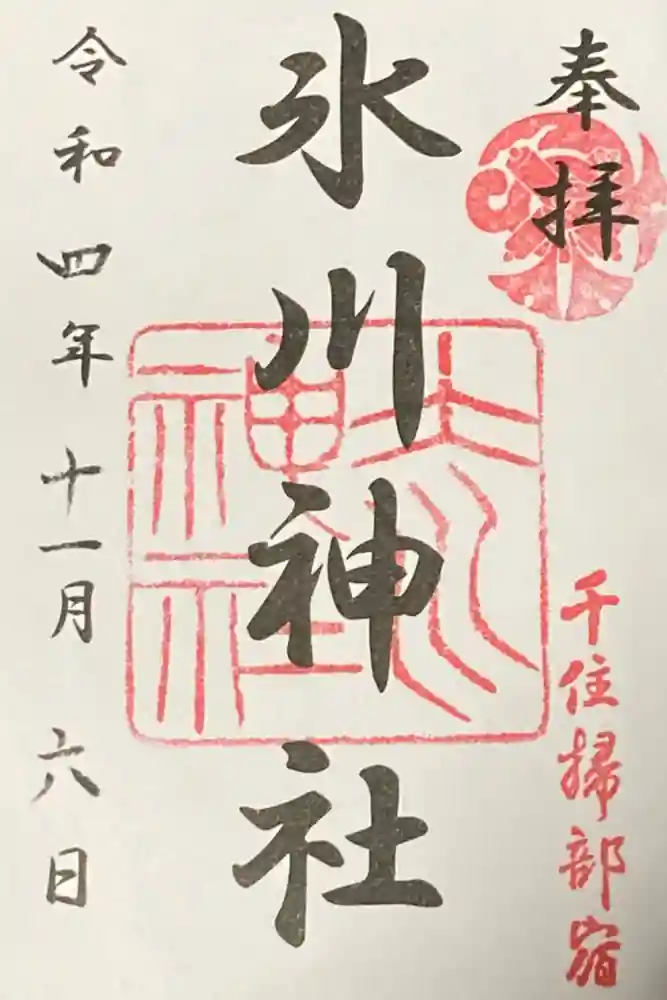 奉拝
千住掃部宿
氷川神社
氷川神社
令和四年十一月六日